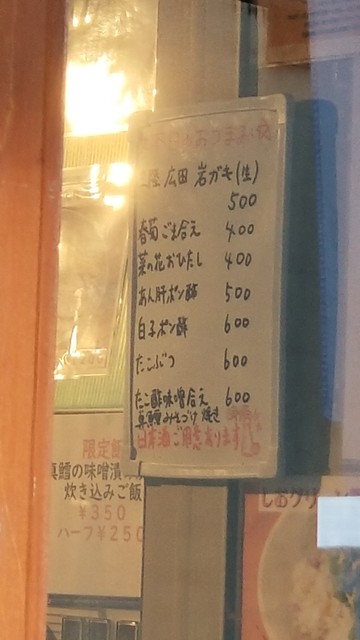 おつまみ
陸 広田 岩ガキ(生)
500
春菊ごま合え 400
菜の花おひたし 400
あん肝ポン酢 500
白子ポン酢 600
たこぶつ 600
たこ酢味噌合え 600
真鱈みそづけ焼き
日本酒ご用意あります
限定飯
真鱈の味噌漬
炊き込みご飯
¥350
ハーフ¥250
しおグリーン